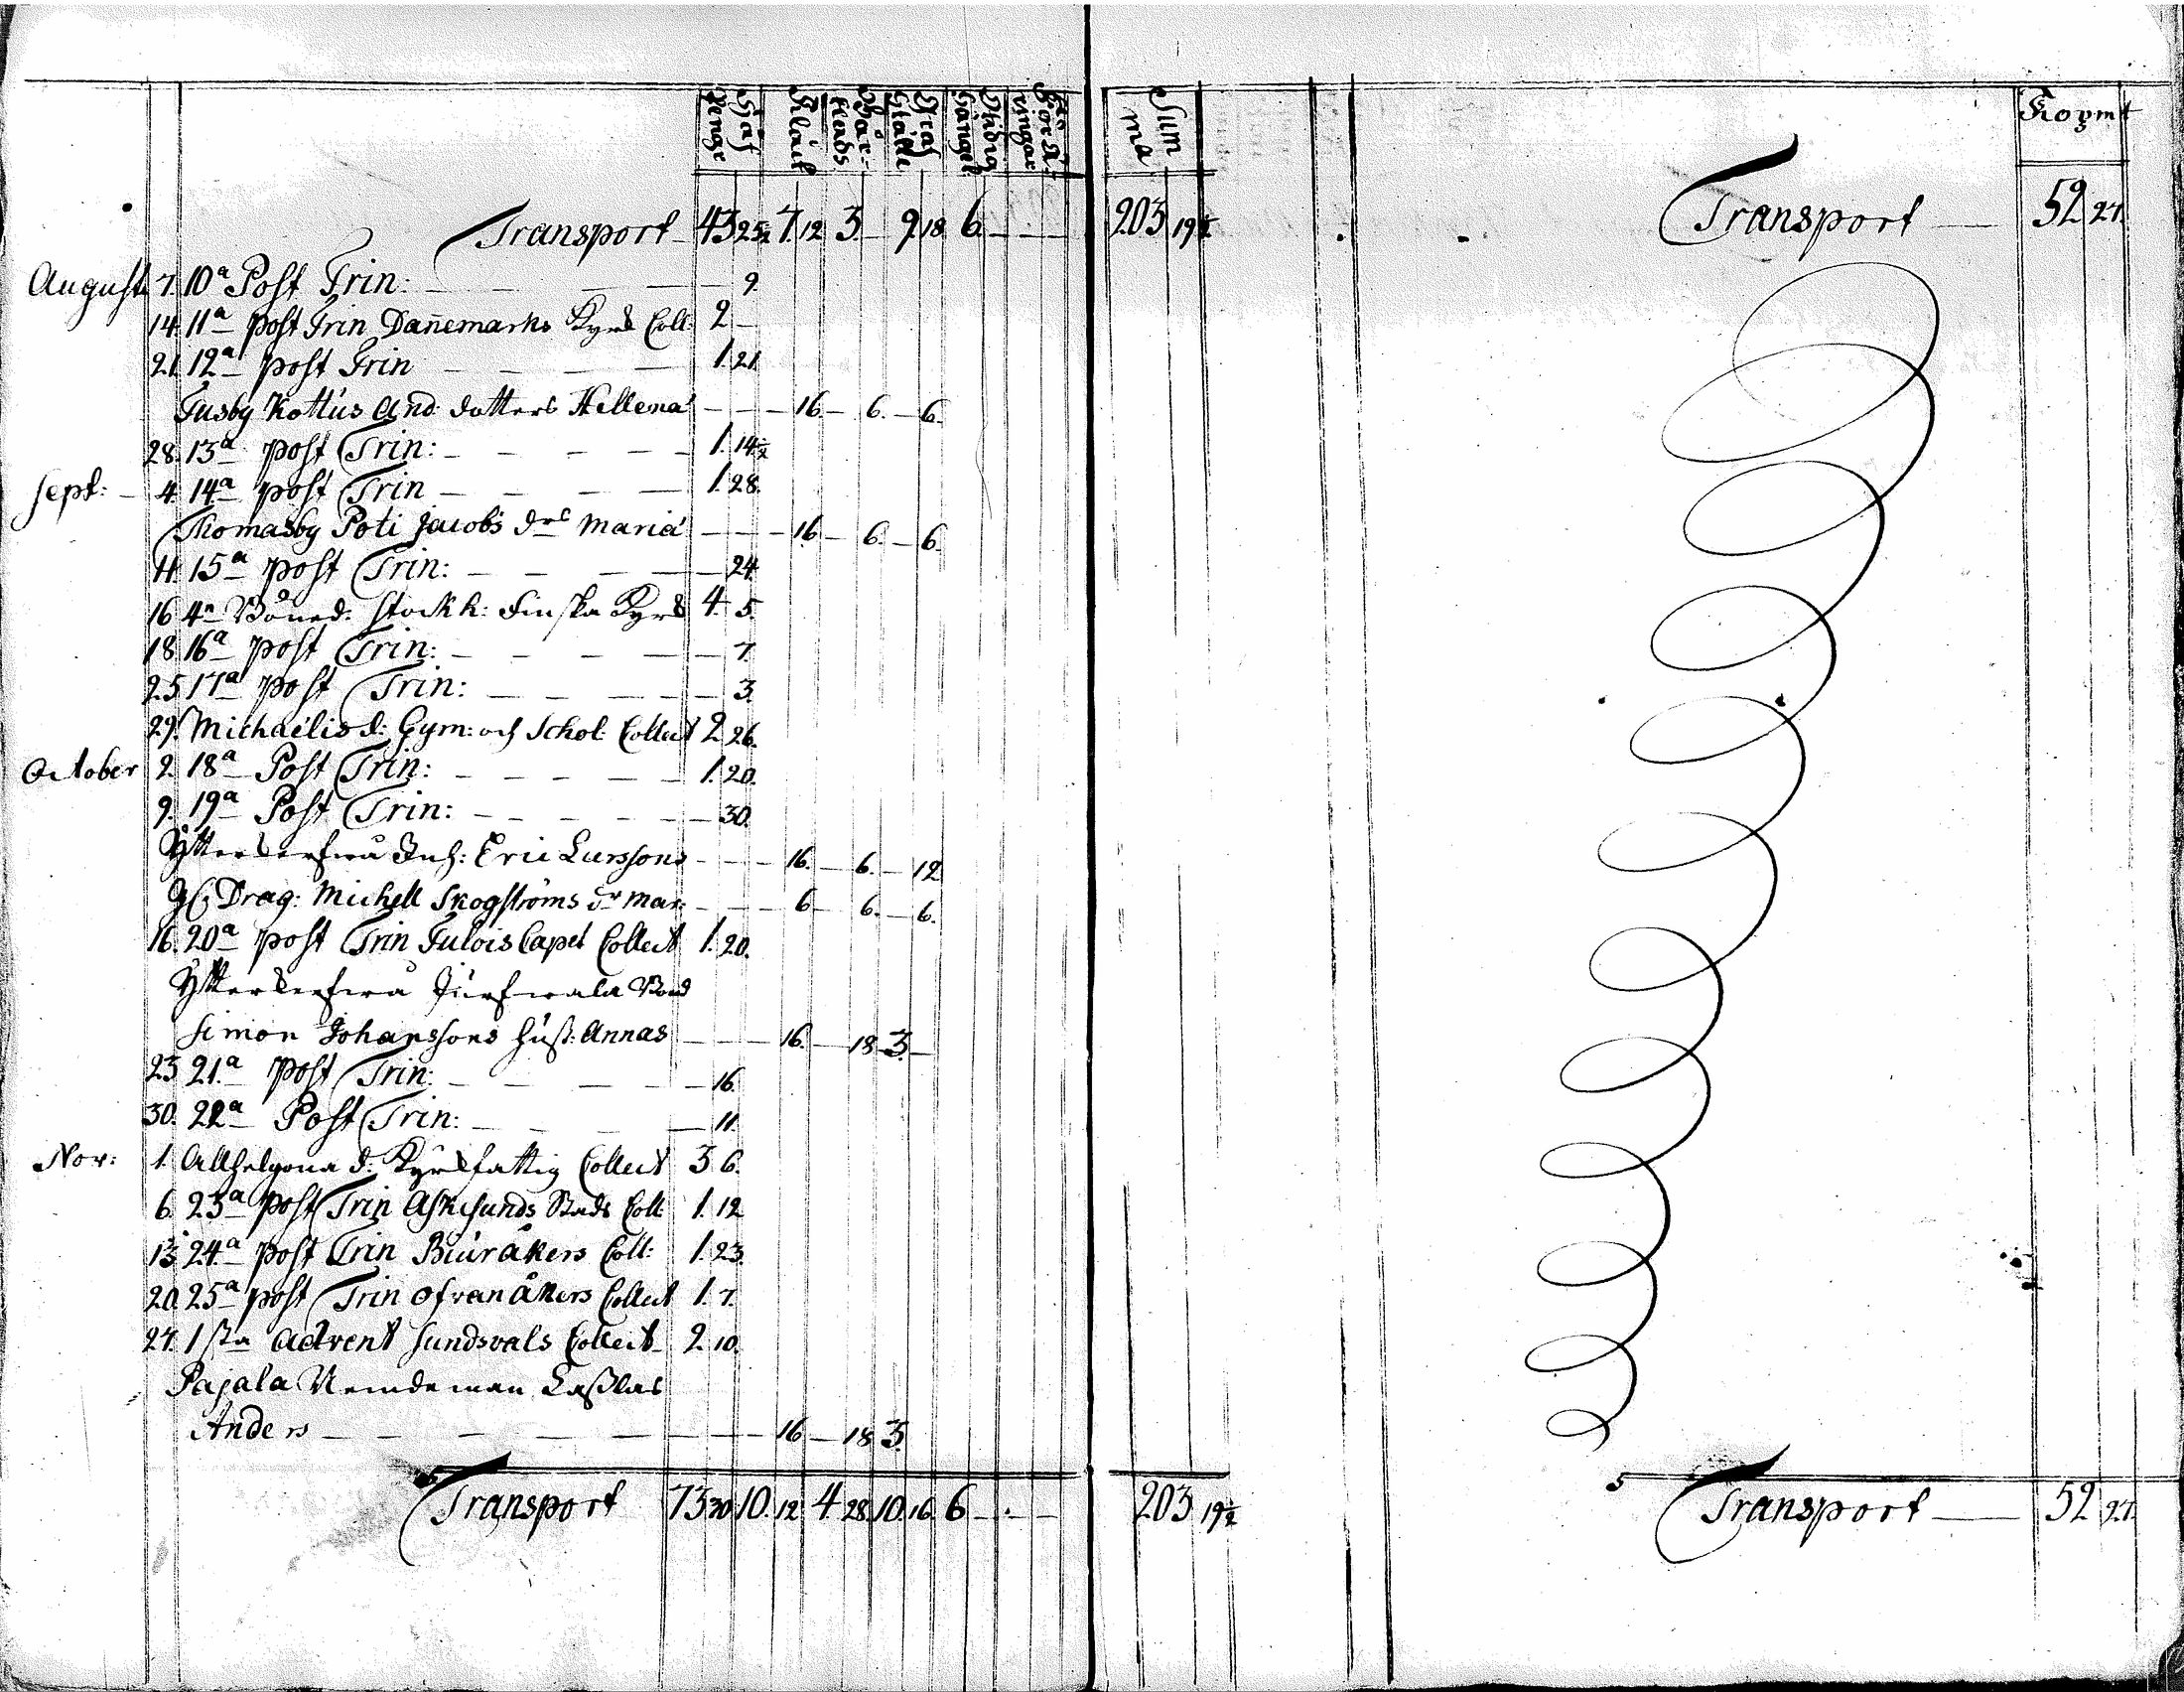 Håf Pengar
Klåck
Bår- kläds
Graf Ställe
Sum ma
Kopmt
Transport 43 25½ 7. 12 3. — 9. 18. 6. — — — 203 19½
Transport — 52 27.
August: 7. 10a Post Trin: — — — — 9.
14. 11a post Trin Danemarks Kyrk Coll: 2 —
21. 12a post Trin — — — — 1. 21.
Tusby Kottus And: dotters Hellena — — — 16. — 6. — 6.
28. 13a post Trin: — — — — — 1. 14½
Sept: — 4. 14a post Trin — — — — 1. 28.
Thomasby Poti Jacobs drs Maria — — — 16 — 6. — 6.
11. 15a post Trin: — — — — 24.
16 4e Böned: Stockh: Finska Kyrk 4. 5.
18. 16a post Trin: — — — — 7.
25. 17a post Trin: — — — — — 3.
29. Michaelis d: Gym: och Schol: Collect 2 26.
October 2. 18a Post Trin: — — — — — 1. 20.
9. 19a Post Trin: — — — — — 30.
Inh: Eric Larssons — — — 16. — 6. — 12.
Drag: Michell Skogströms dr Mar: — — — 6 — 6. — 6.
16. 20a post Trin Capel Collect 1. 20.
Simon Johanssons Hust: Annas — — — 16. — 18 3. —
23 21a Post Trin: — — — — 16.
30. 22a Post Trin: — — — — 11.
Nov: 1. Allhelgona d: Kyrkfattig Collect 3 6.
6. 23a post Trin Askesunds Stads Coll: 1. 12
13. 24a post Trin Biuråkers Coll: 1. 23.
20. 25a post Trin Ofvanåkers Collect 1. 7.
27. 1sta Advent Sundsvals Collect 2. 10.
Pajala Nemdeman Lasslas
Anders — — — — — — — 16 — 18 3.
Transport 73 30 10. 12 4. 28. 10. 16. 6 — — — 203 19½
Transport — 52 27.